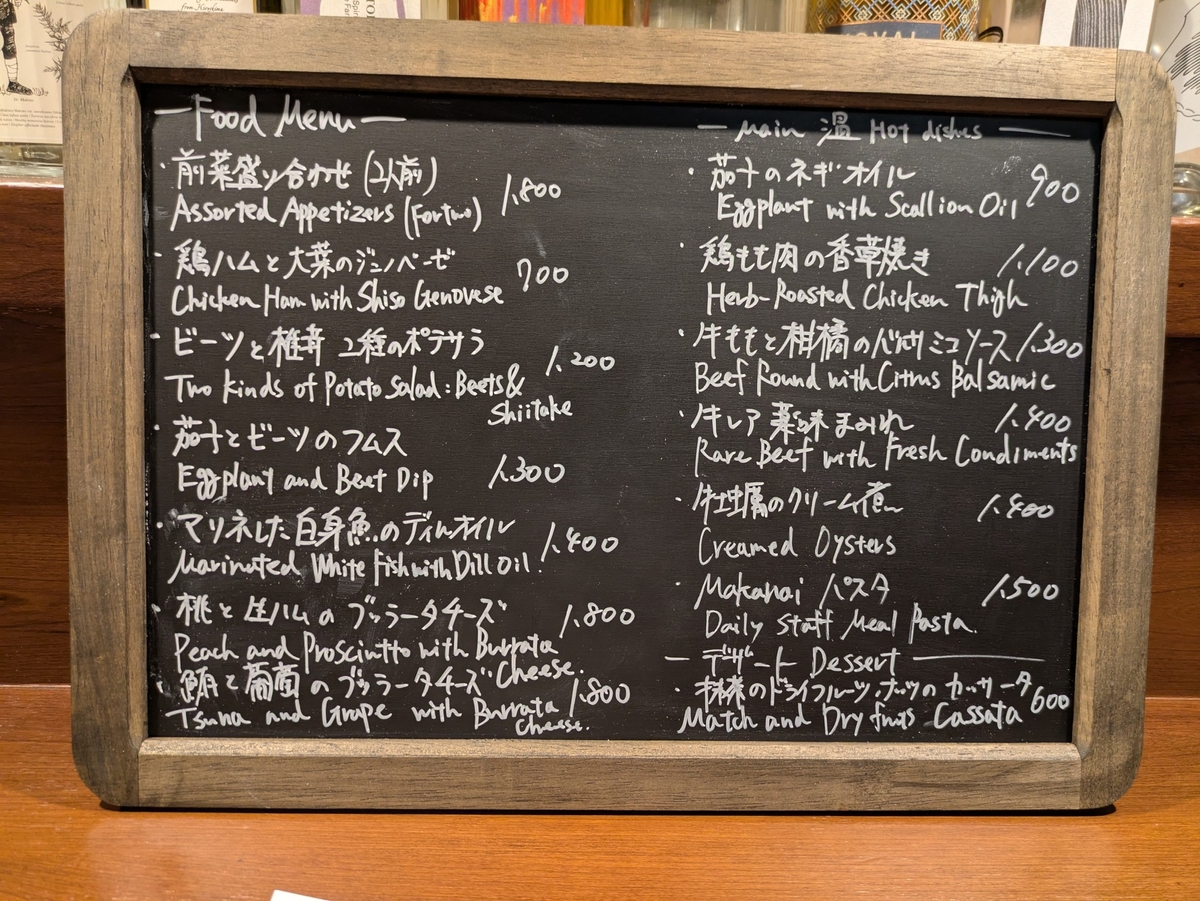 from Hiroshima
ROYAL
—Food Menu—
・前菜盛り合わせ (2人前)
Assorted Appetizers (For two) 1,800
・鶏ハムと大葉のジェノベーゼ 700
Chicken Ham with Shiso Genovese
・ビーツと椎茸 2種のポテサラ 1,200
Two kinds of Potato Salad: Beets &
Shiitake
・茄子とビーツのフムス
Eggplant and Beet Dip 1,300
・マリネした白身魚のディルオイル 1,400
Marinated White Fish with Dill Oil.
・桃と生ハムの ブッラータチーズ 1,800
Peach and Prosciutto with Burrata
Cheese.
・鮪と葡萄のブッラータチーズ 1,800
Tsuna and Grape with Burrata
Cheese.
— Main 温 Hot dishes —
・茄子のネギオイル 900
Eggplant with Scallion Oil
・鶏もも肉の香草焼き 1,100
Herb-Roasted Chicken Thigh
・牛ももと柑橘のバルサミコソース 1,300
Beef Round with Citrus Balsamic
・牛レア 薬味まみれ 1,400
Rare Beef with Fresh Condiments
・牡蠣のクリーム煮 1,400
Creamed Oysters
・Makanai パスタ 1,500
Daily Staff Meal Pasta.
— デザート Dessert —
・抹茶のドライフルーツ、ナッツの カッサータ 600
Match and Dry fruits Cassata